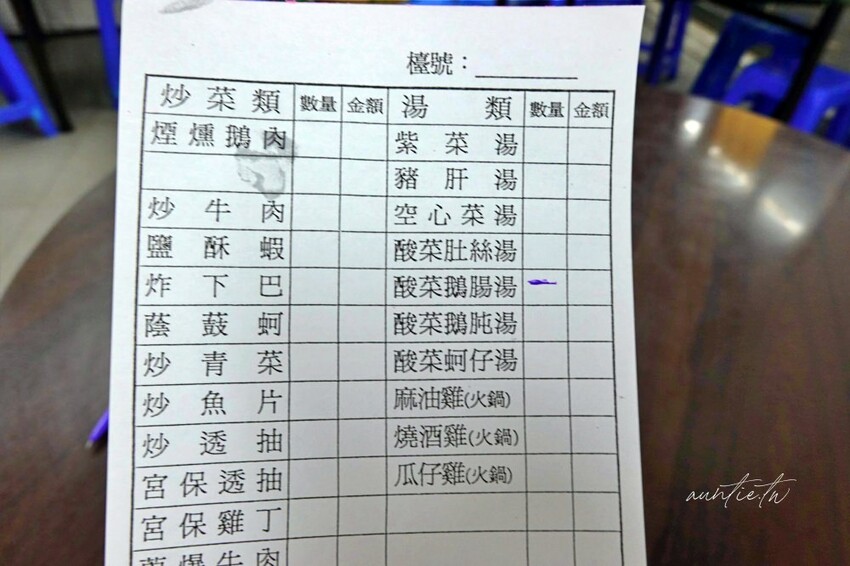 檯號：
炒菜類 數量 金額 湯類 數量 金額
煙燻鵝肉 紫菜湯
豬肝湯
炒牛肉 空心菜湯
鹽酥蝦 酸菜肚絲湯
炸下巴 酸菜鵝腸湯
蔭鼓蚵 酸菜鵝肫湯
炒青菜 酸菜蚵仔湯
炒魚片 麻油雞(火鍋)
炒透抽 燒酒雞(火鍋)
宮保透抽 瓜仔雞(火鍋)
宮保雞丁
爆牛肉
auntie.tw